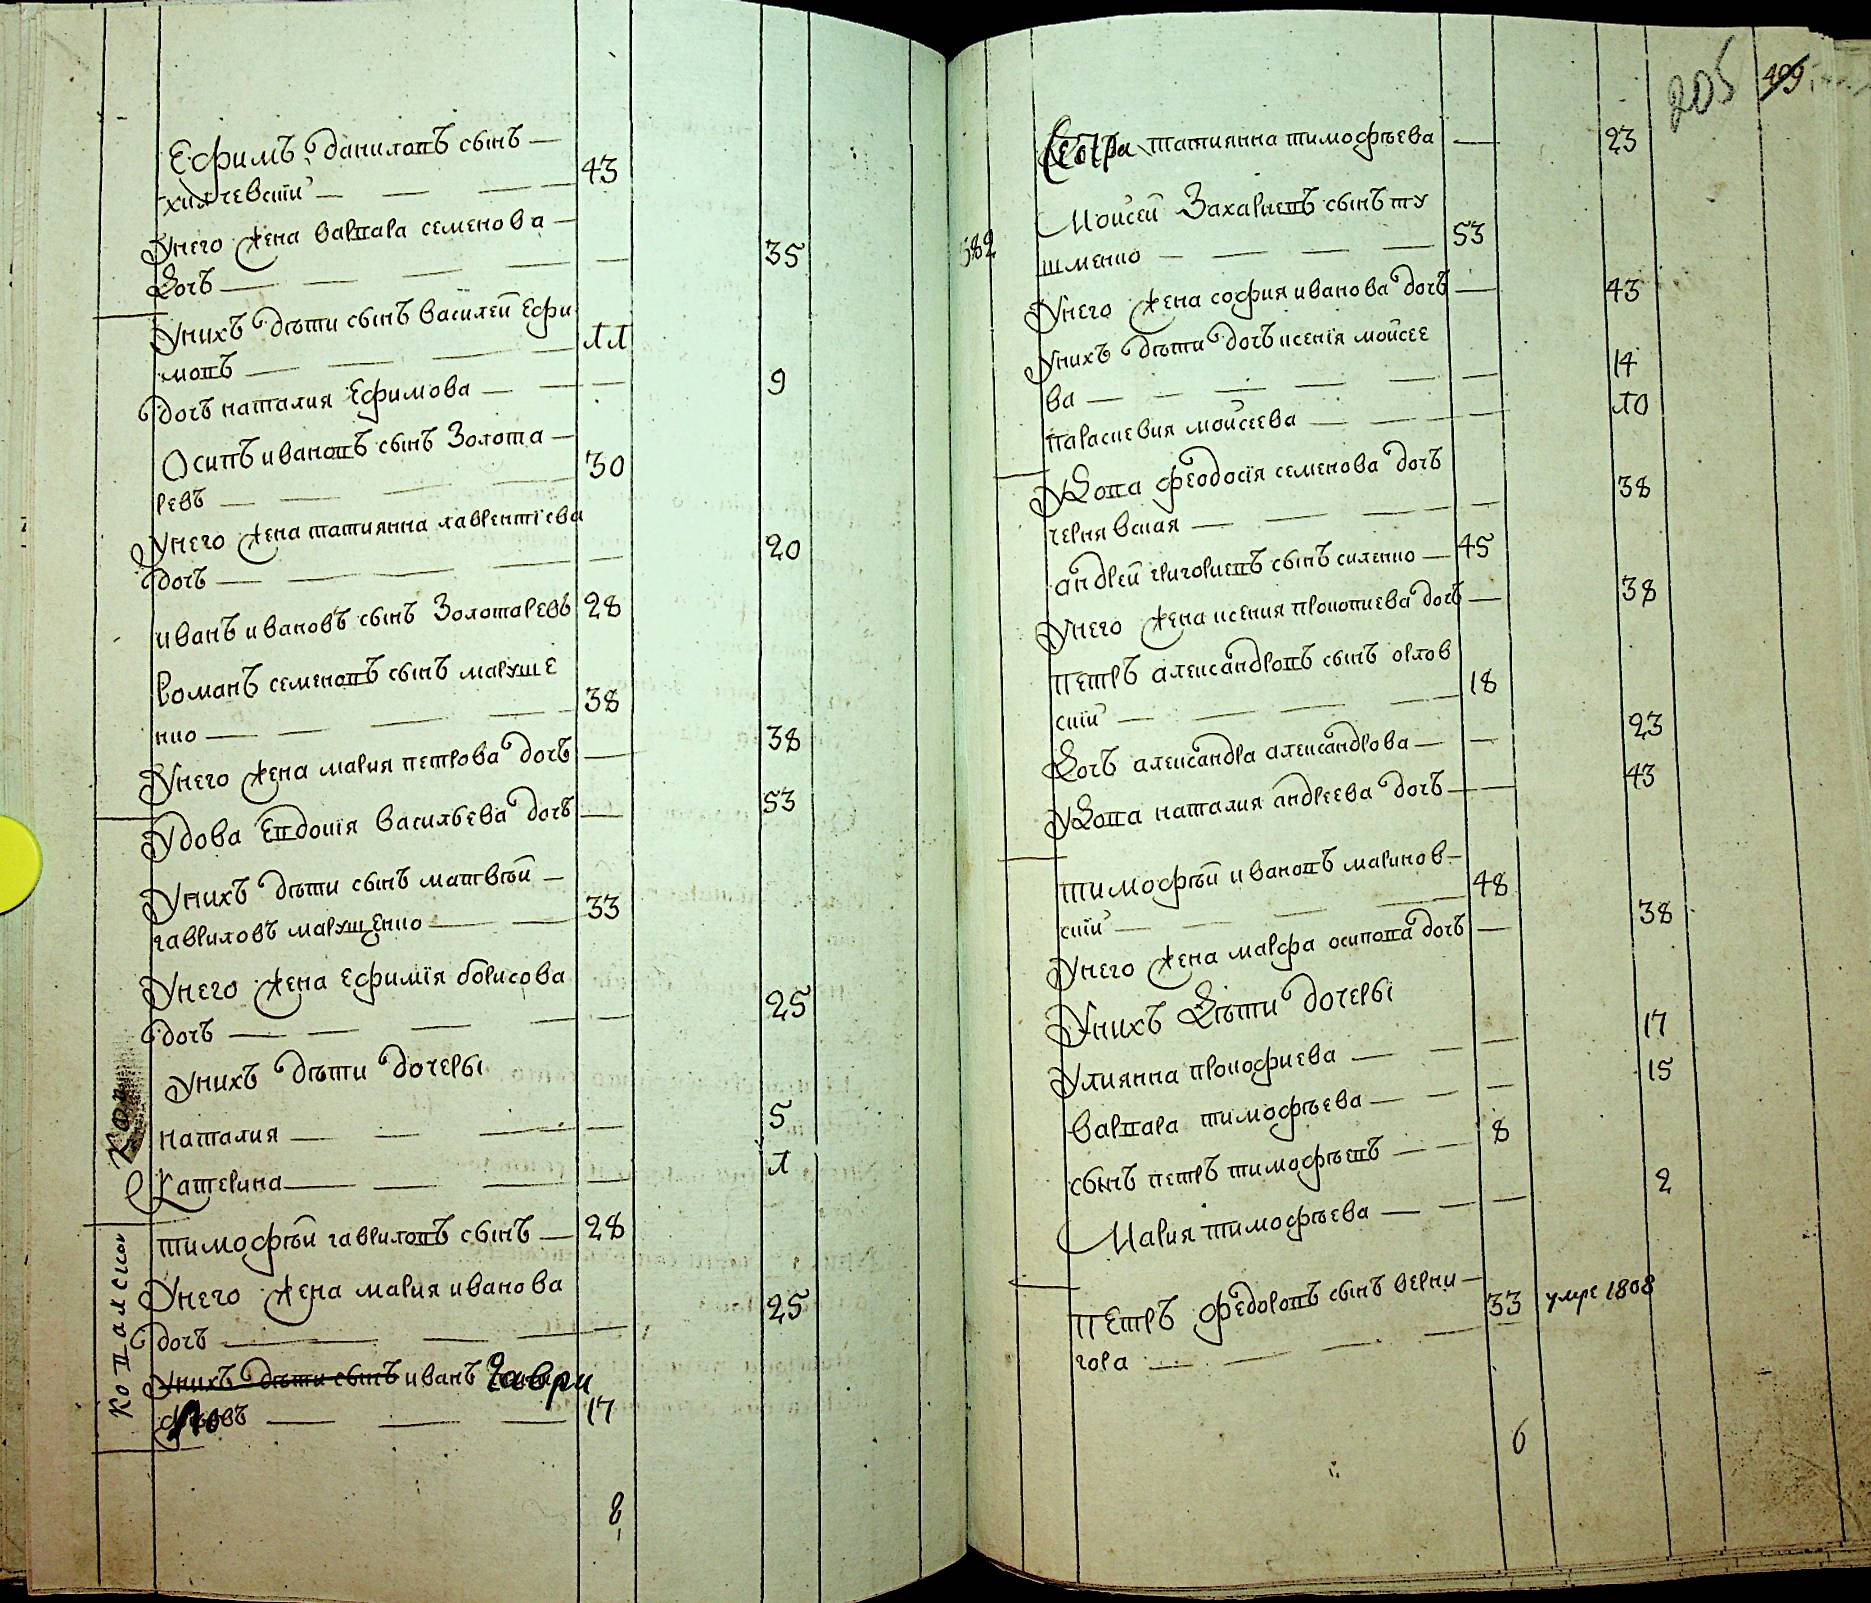 Ефимъ данилопъ сынъ —
хилчевскій —
43
Унего жена варпара семенова —
Дочь —
35
Унихъ дѣти сынъ василей Ефи
мопъ —
11
дочь наталия Ефимова —
9
Осипъ иванопъ сынъ Золота —
ревъ —
30
Унего жена татиянна лаврентіева
дочь —
20
иванъ ивановъ сынъ Золотаревъ 28
Романъ семенопъ сынъ маруще
нко —
38
Унего жена мария петрова дочь —
38
Удова Епдокія Васильева дочь —
53
Унихъ дѣти сынъ матвѣй —
гавриловъ марущенко —
33
Унего жена Ефимія борисова
дочь —
25
Унихъ дѣти дочеры
наталия — 5
Катерина — 1
тимофѣй гаврилопъ сынъ — 28
Унего жена мария иванова
дочь —
25
Унихъ дѣти сынъ иванъ Гаври
ловъ — 17
8
205 499
Сестра татиянна тимофѣева — 23
382
Мойсей Захариепъ сынъ ту
шменко —
53
Унего жена софия иванова дочь — 43
Унихъ дѣти дочь ксенія мойсее
ва —
14
параскевия мойсеева — 10
Удопа феодосія семенова дочь
чернявская —
38
андрей григориепъ сынъ силенко — 45
Унего жена ксения прокопиева дочь — 38
петръ александропъ сынъ орлов
скій —
18
Дочь александра александрова — 23
Удопа наталия андреева дочь — 43
тимофѣй иванопъ малинов—
скій —
48
Унего жена марфа осипопа дочь — 38
Унихъ Дѣти дочеры
Улиянна прокофиева — 17
Варпара тимофѣева — 15
сынъ петръ тимофѣепъ — 8
Мария тимофѣева — 2
петръ федоропъ сынъ верни—
гора —
33 умре 1808
6